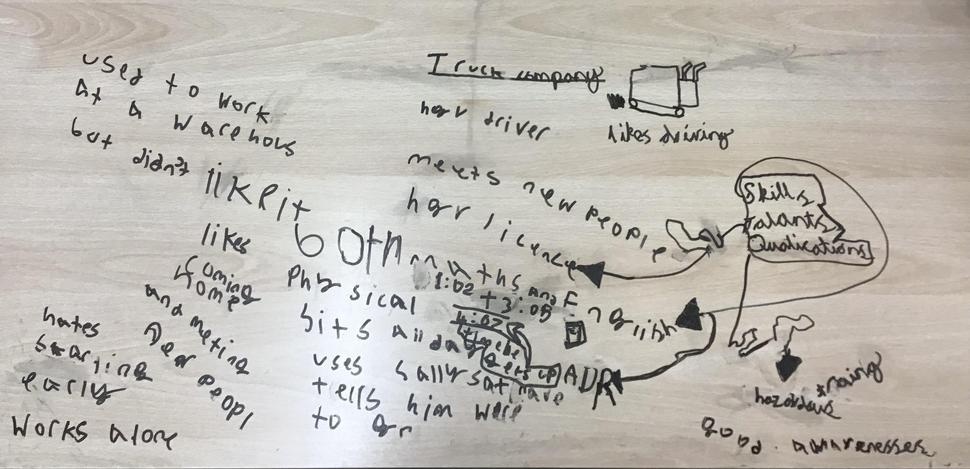 used to work
at a warehous
but didn't
likeit
likes
coming
home
and meting
Dear peopl
hates
starting
early
works alone
Truck company
hgv driver
likes driving
meets new people
hgv licence
both maths and English
Physical
1:02
+ 3:05
4:07
Sits all day
time he
gets up
uses sally sat nave
tells him were
to go
ADR
Skills
talants
Qualications
hazardous traning
good. awarenesses